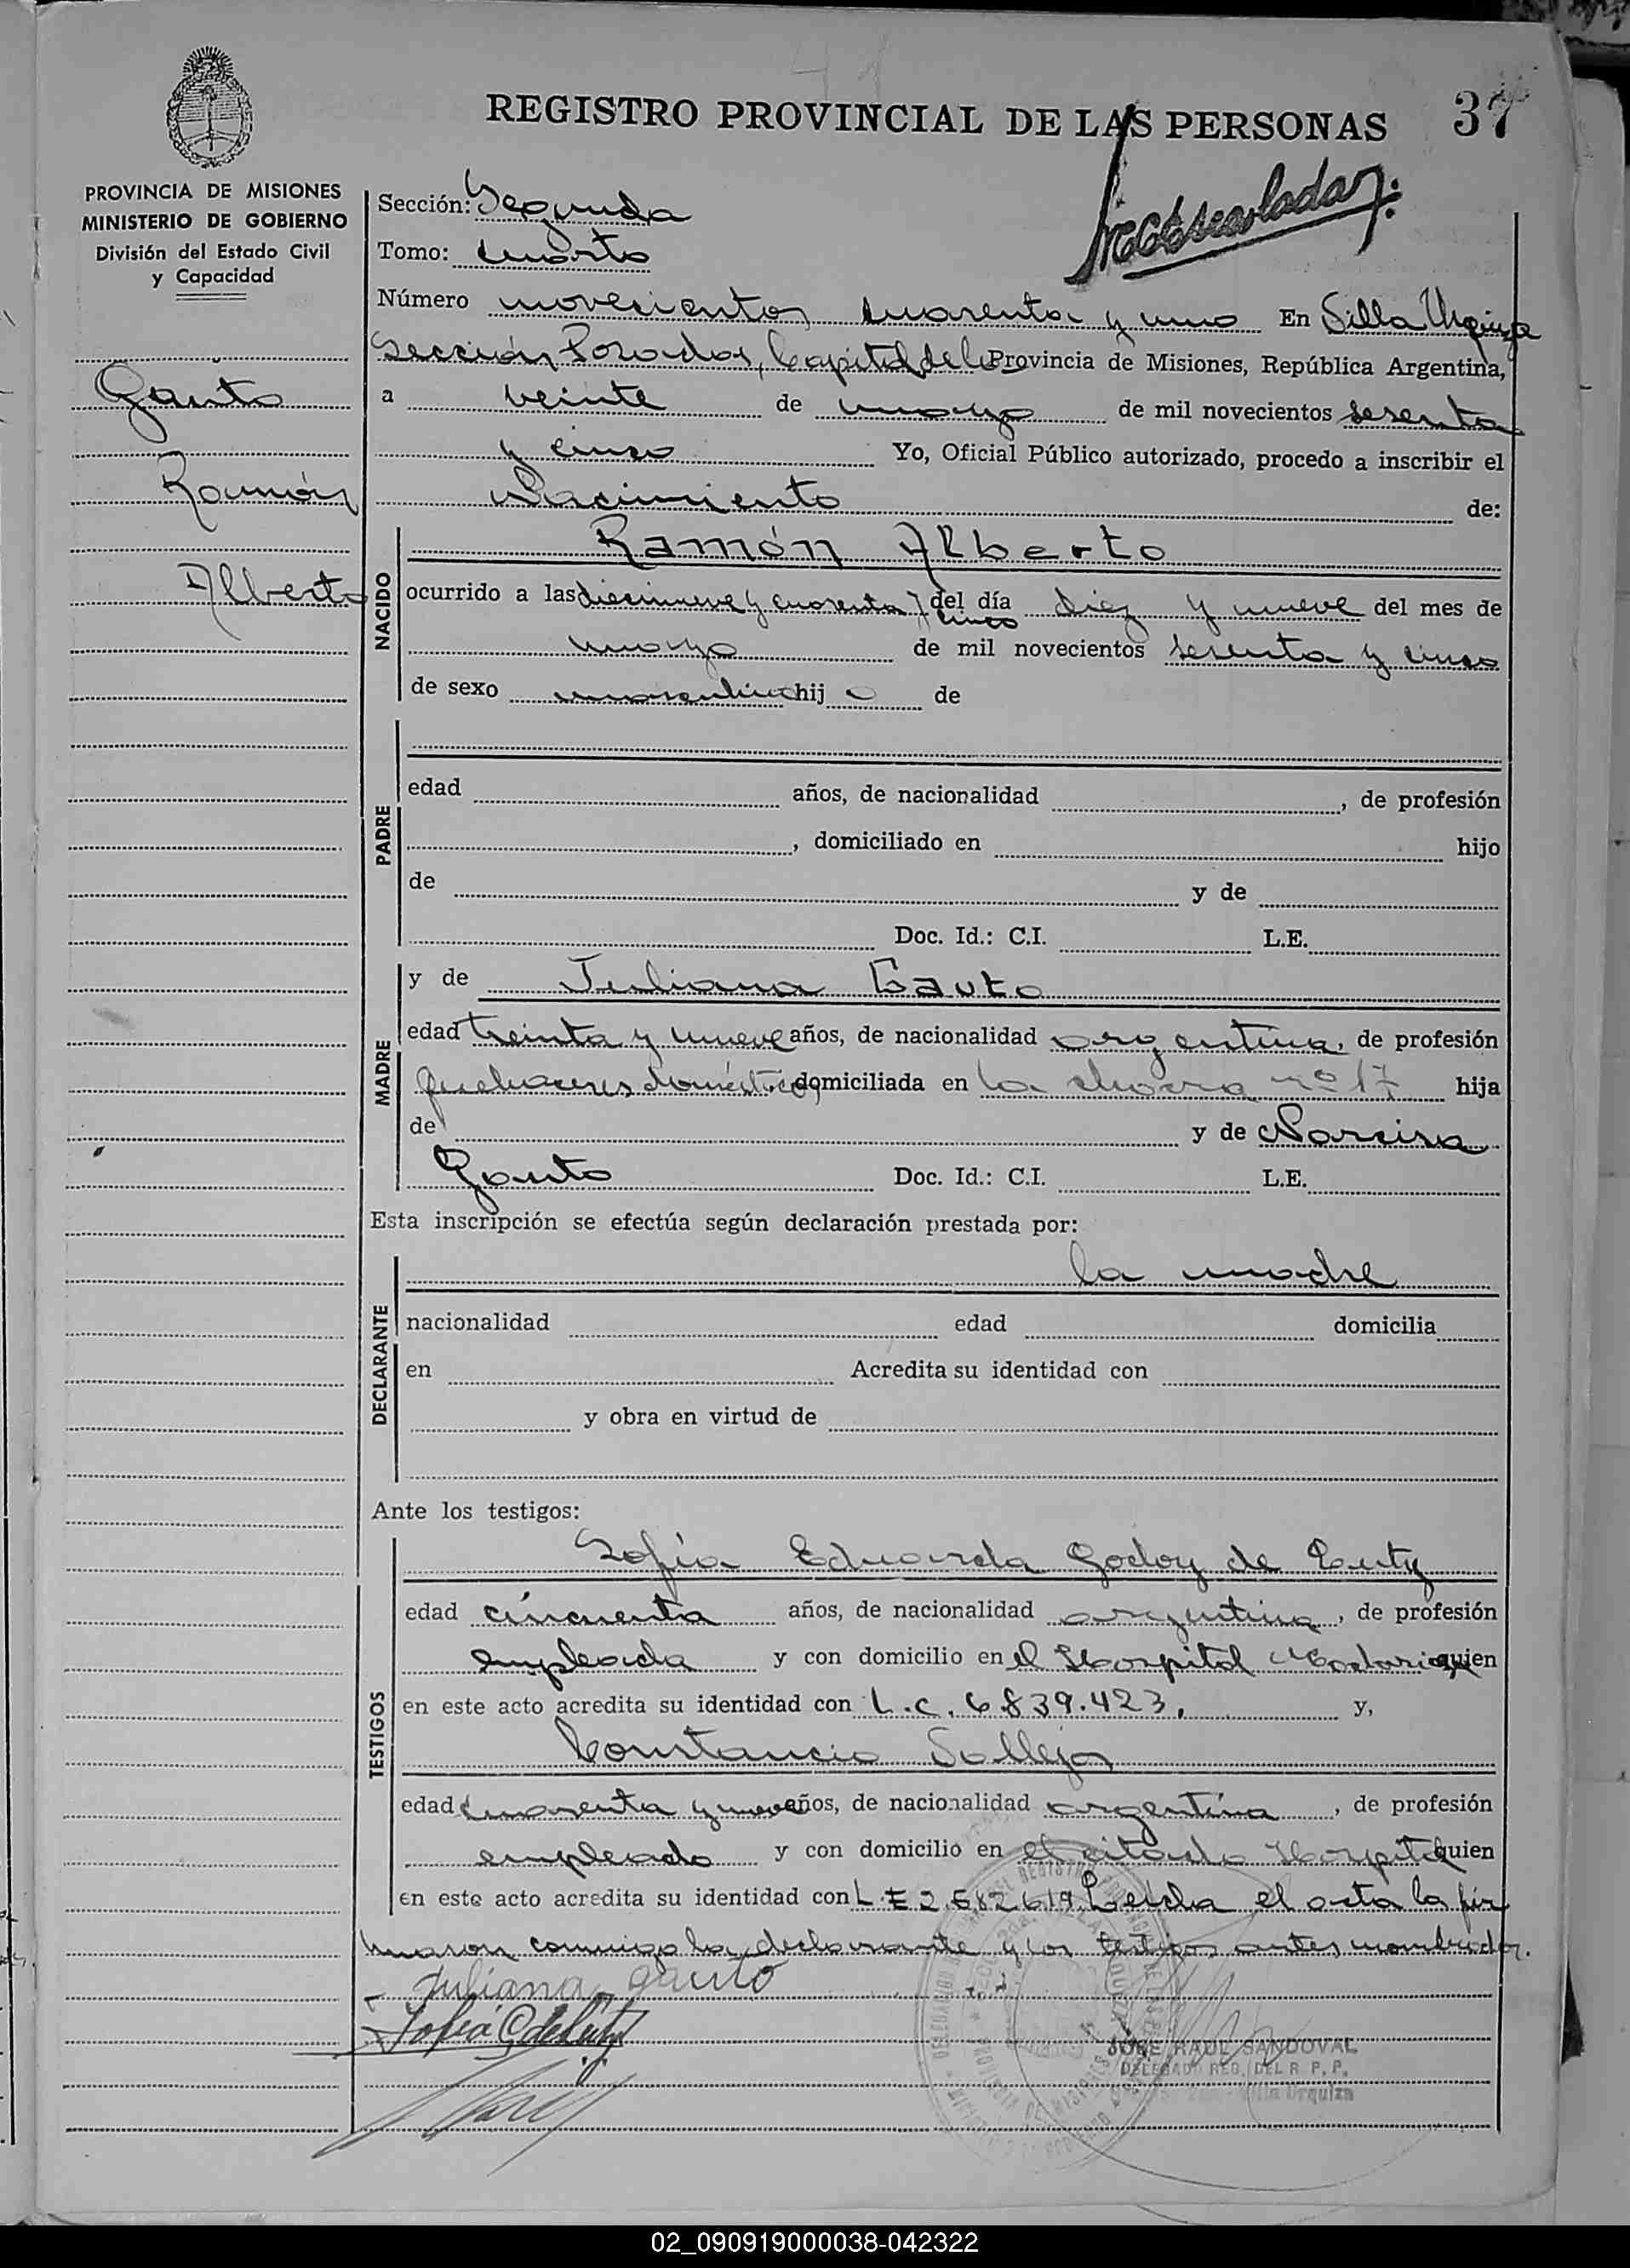 REGISTRO PROVINCIAL DE LAS PERSONAS 37
PROVINCIA DE MISIONES
MINISTERIO DE GOBIERNO
División del Estado Civil
y Capacidad
Gauto
Ramón
Alberto
Sección: Segunda
Tomo: cuarto
Número novecientos cuarenta y uno En Villa Urquiza
Sección Posadas, Capital de la Provincia de Misiones, República Argentina,
a veinte de mayo de mil novecientos sesenta
y cinco Yo, Oficial Público autorizado, procedo a inscribir el
Nacimiento de:
NACIDO
Ramón Alberto
ocurrido a las diecinueve y cuarenta y cinco del día diez y nueve del mes de
mayo de mil novecientos sesenta y cinco
de sexo masculino hijo de
PADRE
edad años, de nacionalidad , de profesión
, domiciliado en hijo
de y de
Doc. Id.: C.I. L.E.
MADRE
y de Juliana Gauto
edad treinta y nueve años, de nacionalidad argentina, de profesión
quehaceres domésticos domiciliada en la chacra nº 17 hija
de y de Narcisa
Gauto Doc. Id.: C.I. L.E.
Esta inscripción se efectúa según declaración prestada por:
DECLARANTE
la madre
nacionalidad edad domicilia
en Acredita su identidad con
y obra en virtud de
Ante los testigos:
TESTIGOS
Sofía Eduarda Godoy de
edad cincuenta años, de nacionalidad argentina, de profesión
empleada y con domicilio en el Hospital Madariaga quien
en este acto acredita su identidad con L.C. 6.839.423, y,
Constancio Vallejos
edad cuarenta y nueve años, de nacionalidad argentina, de profesión
empleado y con domicilio en el citado Hospital quien
en este acto acredita su identidad con L.E 2.582.619. Leída el acta la fir
maron conmigo la declarante y los testigos antes nombrados.
Juliana gauto
JOSE RAUL SANDOVAL
DELEGADO REG. DEL R. P. P.
Villa Urquiza
02_090919000038-042322